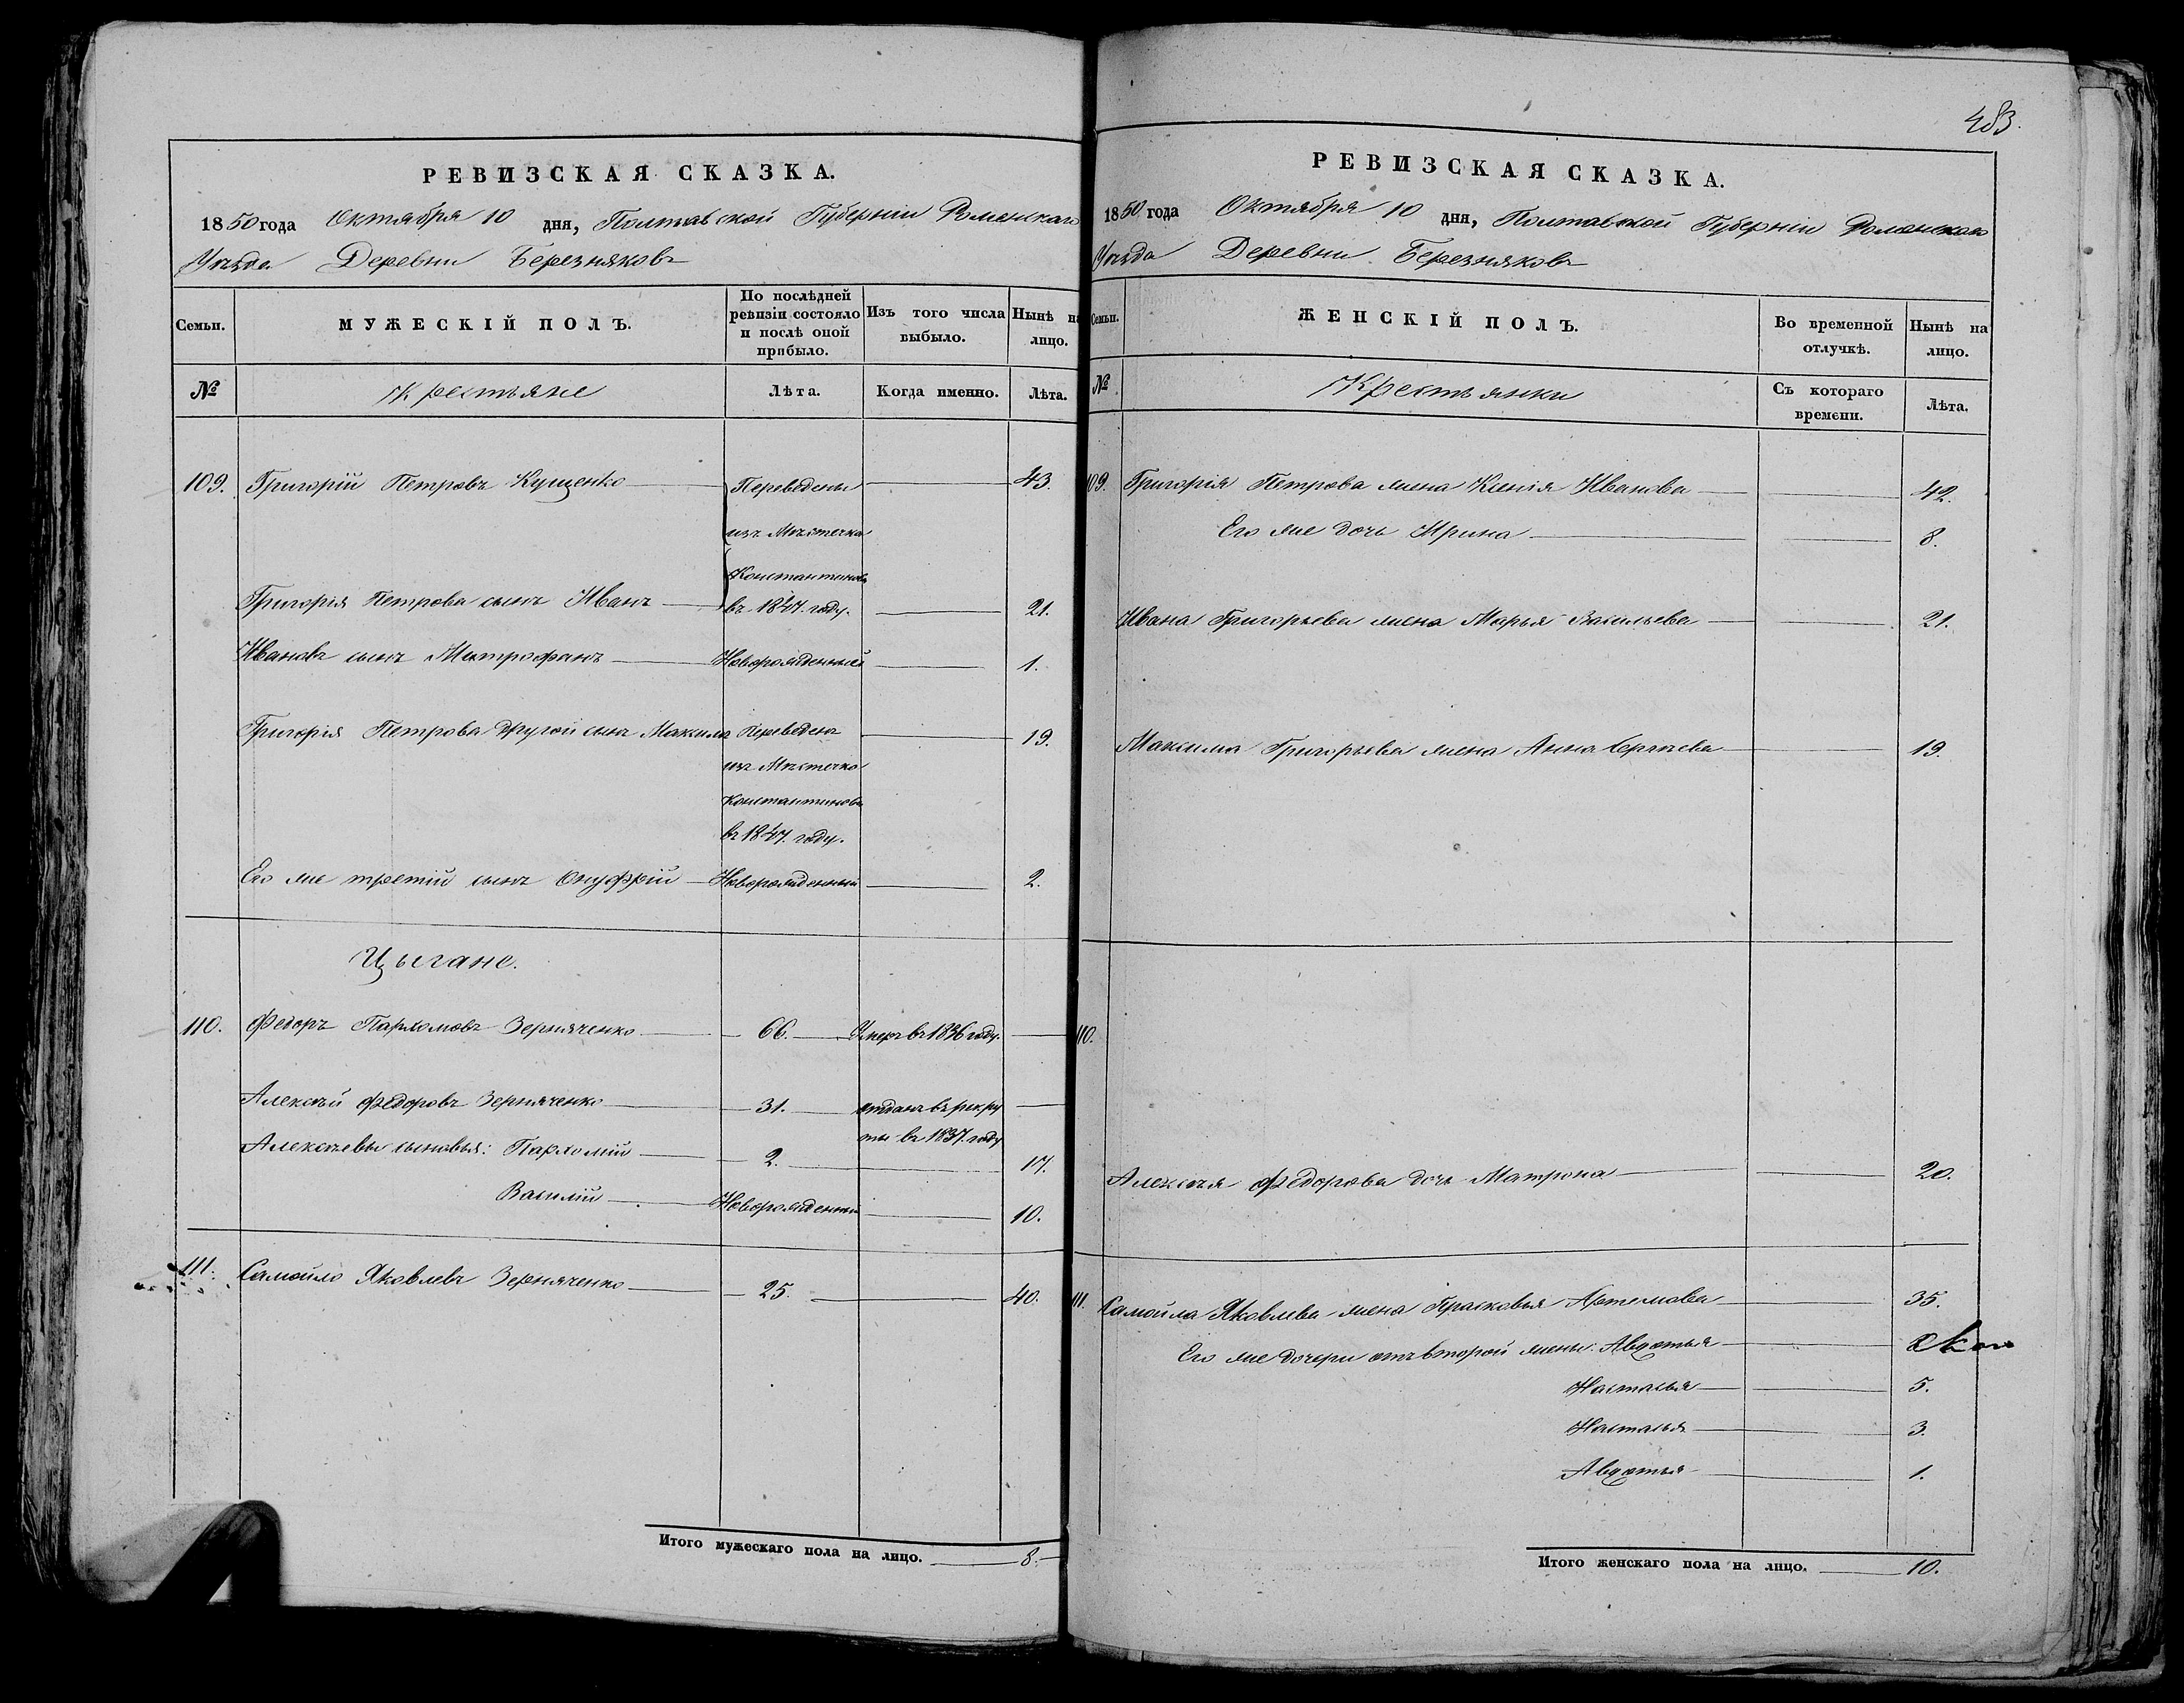 РЕВИЗСКАЯ СКАЗКА.
1850 года Октября 10 дня, Полтавской Губерніи Роменскаго
Уѣзда Деревни Березняковъ
Семьи. МУЖЕСКІЙ ПОЛЪ. По послѣдней ревизіи состояло и послѣ оной прибыло. Изъ того числа выбыло. Нынѣ на лицо.
№ Крестьяне Лѣта. Когда именно. Лѣта.
109. Григорій Петровъ Кущенко Переведены 43.
изъ Мѣстечка
Константинова
Григорія Петрова сынъ Иванъ въ 1847. году. 21.
Ивановъ сынъ Митрофанъ Новорожденный 1.
Григорія Петрова другой сынъ Максимъ Переведенъ 19.
изъ Мѣстечка
Константинова
въ 1847. году.
Его же третій сынъ Онуфрій Новорожденный 2.
Цыгане.
110. Федоръ Пархомовъ Зерняченко 66. Умеръ въ 1836 году.
Алексѣй Федоровъ Зерняченко 31. отданъ въ рекру
ты въ 1837. году
Алексѣевы сыновья: Пархомій 2. 17.
Василій Новорожденный 10.
111. Самойло Яковлевъ Зерняченко 25. 40.
Итого мужескаго пола на лицо. 8.
483.
РЕВИЗСКАЯ СКАЗКА.
1850 года Октября 10 дня, Полтавской Губерніи Роменскаго
Уѣзда Деревни Березняковъ
Семьи. ЖЕНСКІЙ ПОЛЪ. Во временной отлучкѣ. Нынѣ на лицо.
№ Крестьянки Съ котораго времени. Лѣта.
109. Григорія Петрова жена Ксенія Иванова 42.
Его же дочь Ирина 8.
Ивана Григорьева жена Марья Васильева 21.
Максима Григорьева жена Анна Сергѣева 19.
110.
Алексѣя Федорова дочь Матрона 20.
111. Самойла Яковлева жена Прасковья Артемова 35.
Его же дочери отъ второй жены: Авдотья
Настасья 5.
Настасья 3.
Авдотья 1.
Итого женскаго пола на лицо. 10.